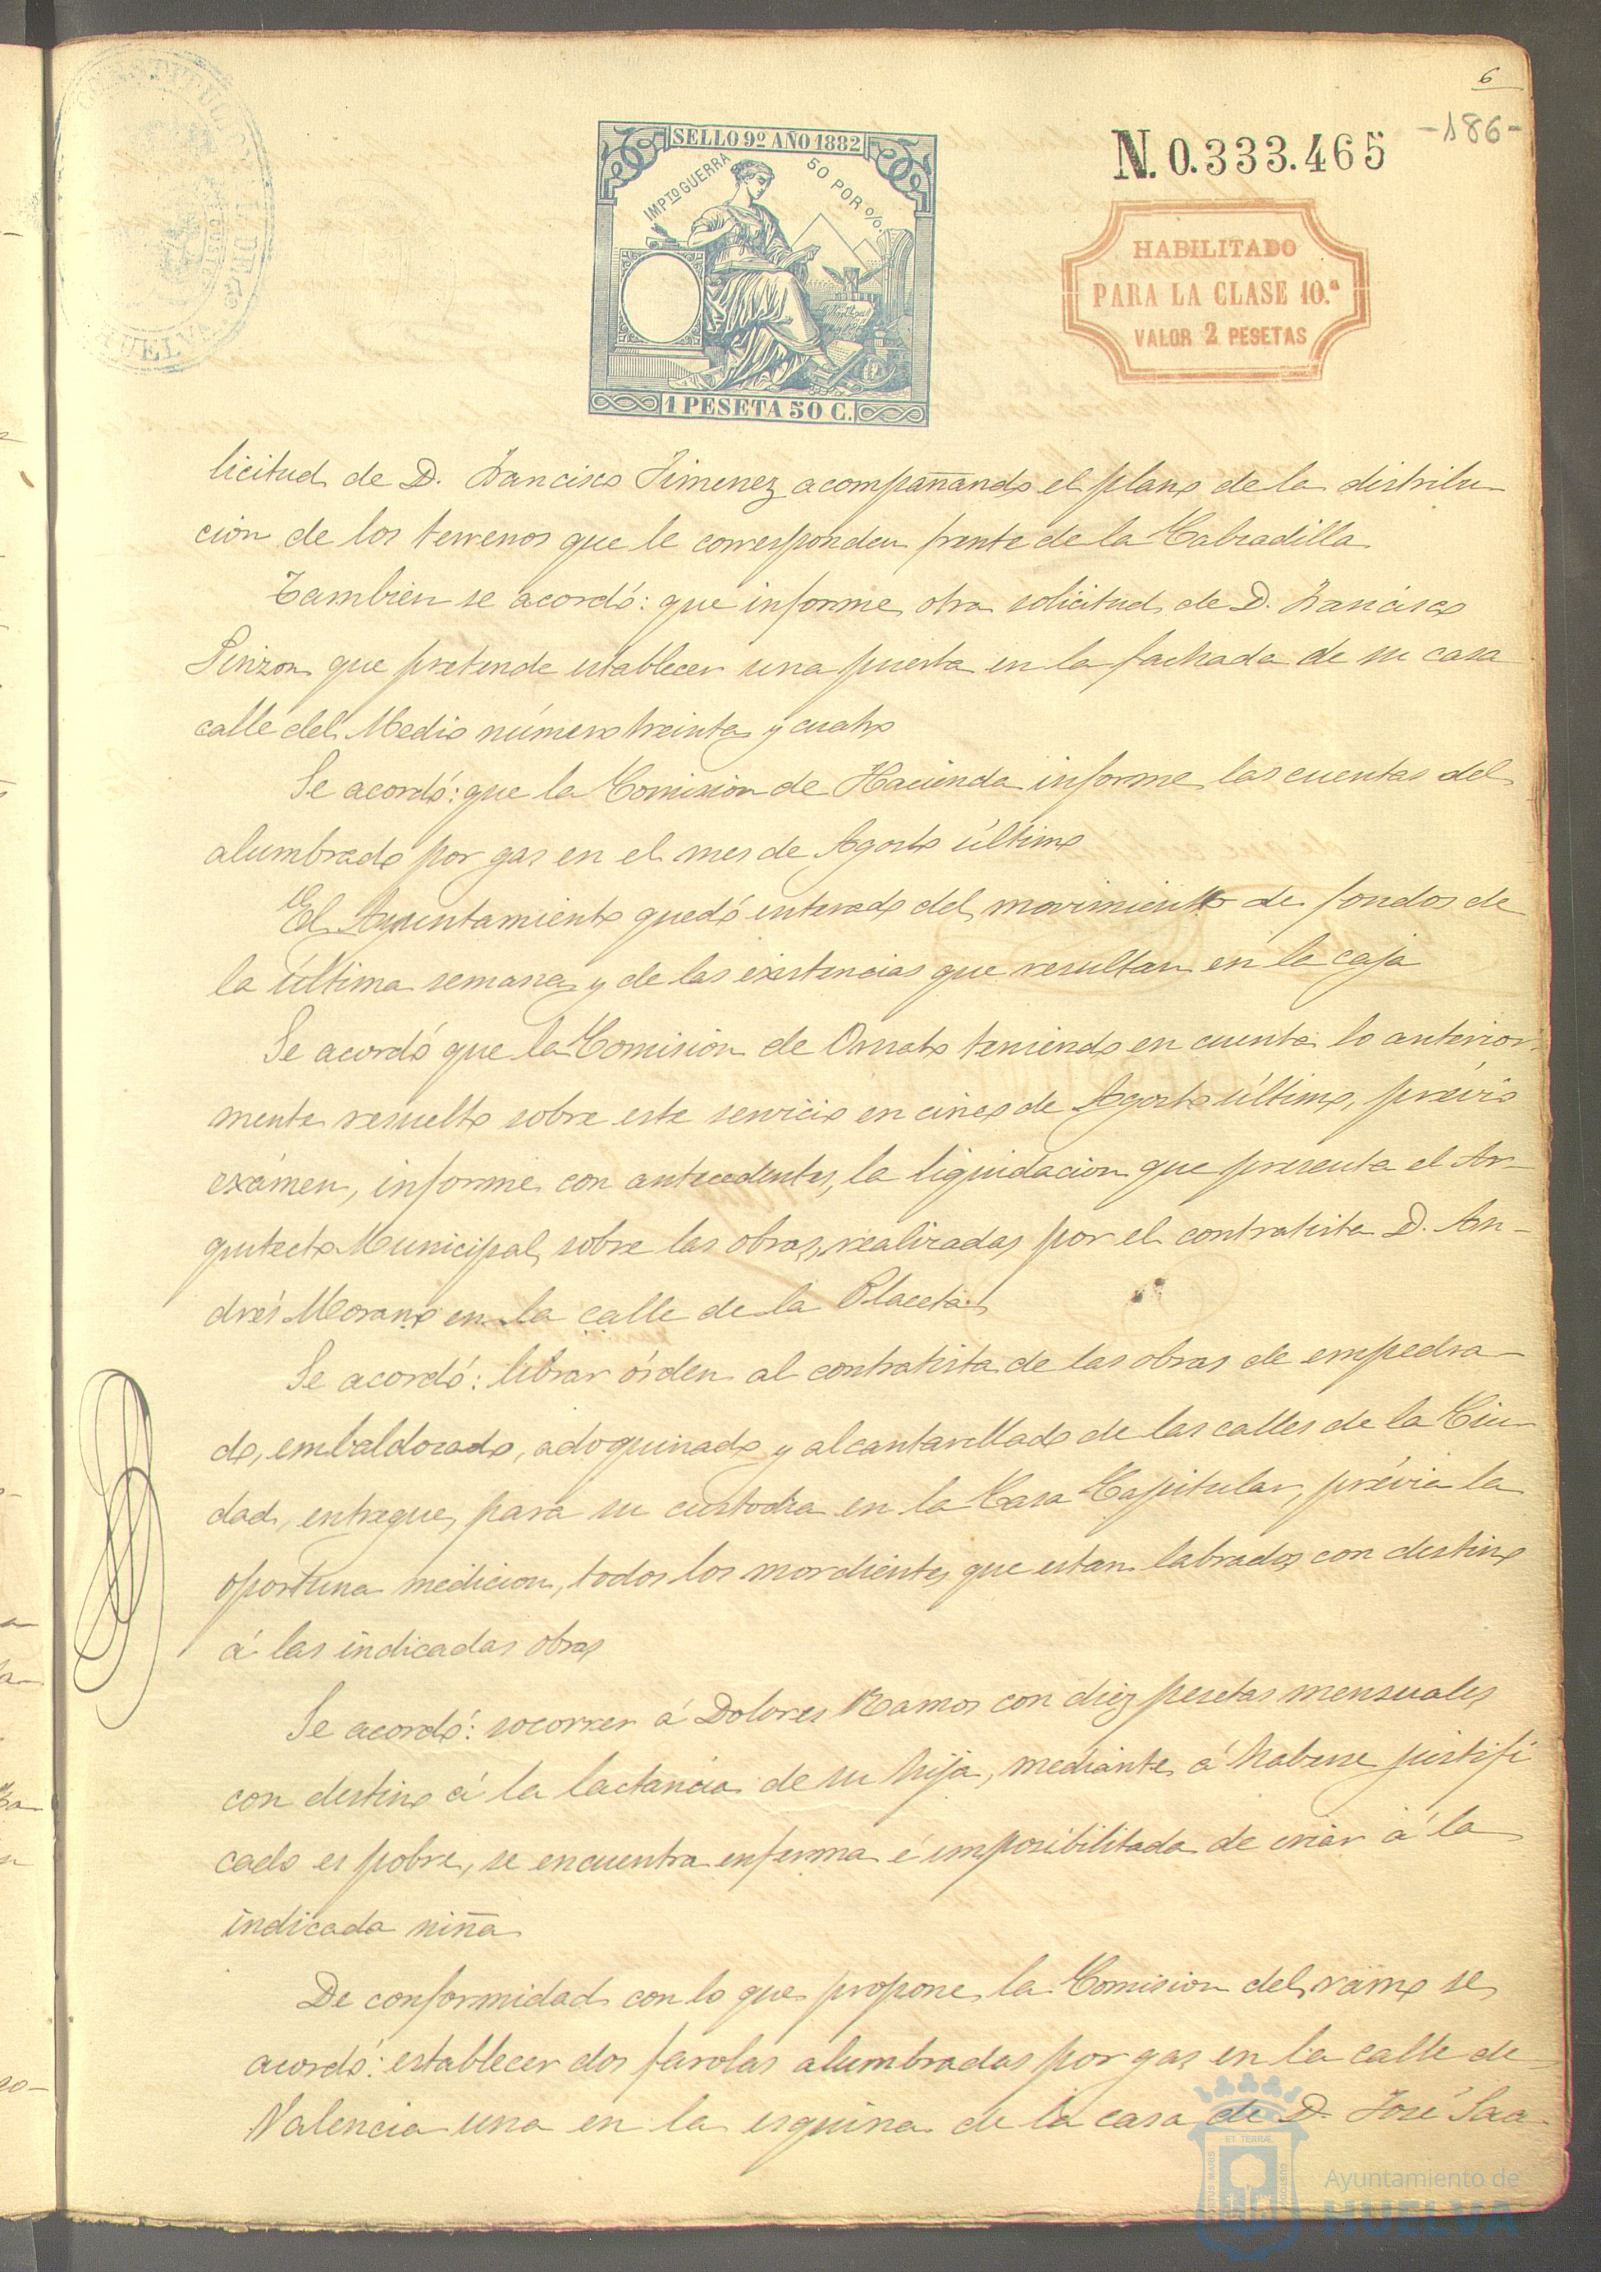 6
-186-
SELLO 9º AÑO 1882
IMPTO GUERRA 50 POR %.
1 PESETA 50 C.
N. 0.333.465
HABILITADO
PARA LA CLASE 10.ª
VALOR 2 PESETAS
HUELVA
licitud de D. Francisco Jimenez acompañando el plano de la distribu-
ción de los terrenos que le corresponden frente de la Calzadilla
Tambien se acordó: que informe otra solicitud de D. Francisco
Pinzon que pretende establecer una puerta en la fachada de su casa
calle del Medio número treinta y cuatro
Se acordó: que la Comision de Hacienda informe las cuentas del
alumbrado por gas en el mes de Agosto último
El Ayuntamiento quedó enterado del movimiento de fondos de
la última semana y de las existencias que resultan en la caja
Se acordó que la Comision de Ornato teniendo en cuenta lo anterior-
mente resuelto sobre este servicio en cinco de Agosto último, prévio
exámen, informe con antecedentes, la liquidacion que presenta el Ar-
quitecto Municipal, sobre las obras realizadas por el contratista D. An-
drés Morano en la calle de la Placeta
Se acordó: librar órden al contratista de las obras de empedra-
do, embaldosado, adoquinado y alcantarillado de las calles de la Ciu-
dad, entregue, para su custodia en la Casa Capitular, prévia la
oportuna medicion, todos los mordientes que estan labrados con destino
á las indicadas obras
Se acordó: socorrer á Dolores Ramos con diez pesetas mensuales
con destino á la lactancia de su hija, mediante á haberse justifi
cado es pobre, se encuentra enferma é imposibilitada de criar á la
indicada niña
De conformidad con lo que propone la Comision del ramo se
acordó: establecer dos farolas alumbradas por gas en la calle de
Valencia una en la esquina de la casa de D. José Saa-
Ayuntamiento de
HUELVA